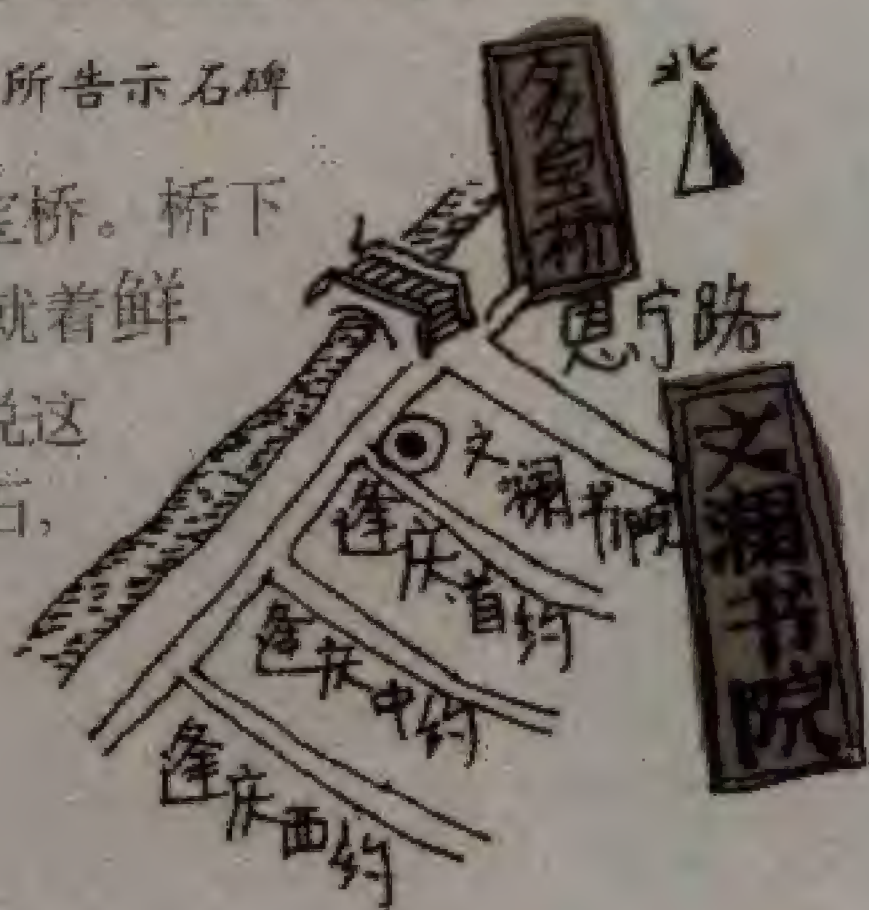 所告示石碑
桥。桥下
就着鲜
说这
北
多宝桥
恩宁路
文澜书院
文澜书院
逢庆首约
逢庆中约
逢庆西约